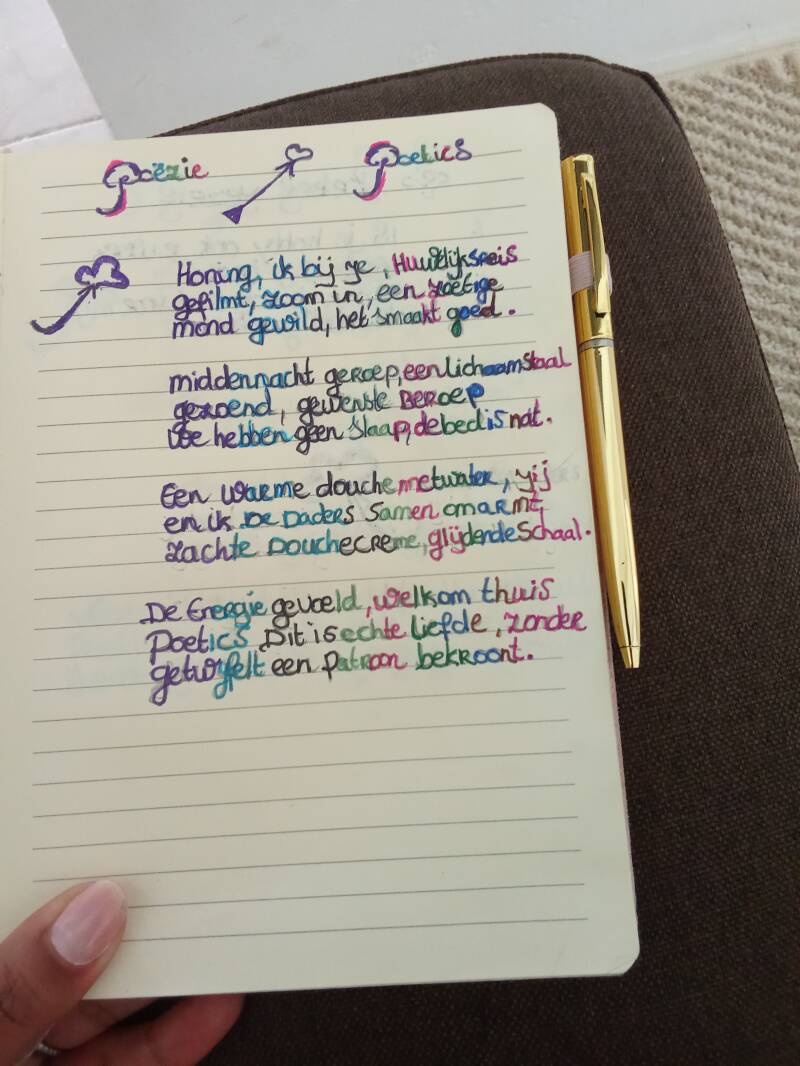 Poëzie Poetics
Honing, ik bij je, Huwelijksreis
gefilmt, zoom in, een zoetige
mond gewild, het smaakt goed.
middennacht geroep, een lichaamstaal
gezoend, gewenste Beroep
We hebben geen slaap, de bed is nat.
Een warme douche met water, jij
en ik De Daders samen omarmt,
zachte Douchecreme, glijdende schaal.
De Energie gevoeld, welkom thuis
Poetics. Dit is echte liefde, zonder
getwyfelt een patroon bekroont.